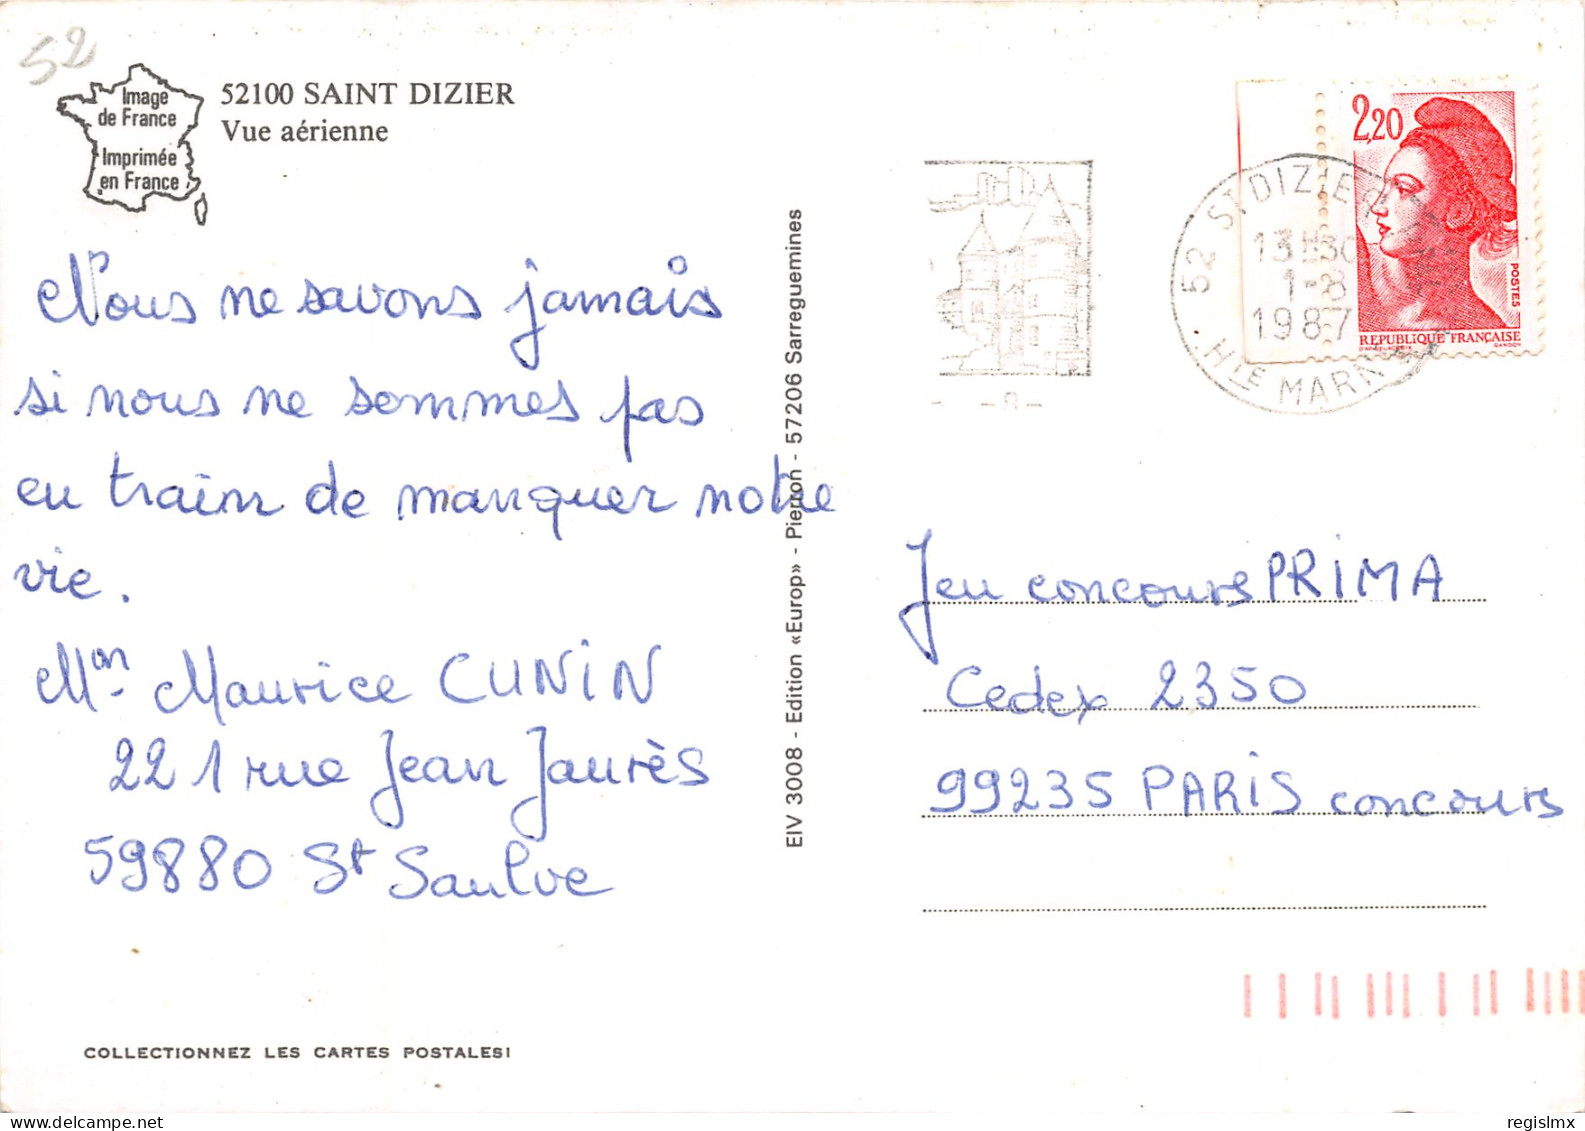 52
Image
de France
Imprimée
en France
52100 SAINT DIZIER
Vue aérienne
Nous ne savons jamais
si nous ne sommes pas
en train de manquer notre
vie.
Mon Maurice CUNiN
221 rue Jean Jaurès
59880 St Saulve
COLLECTIONNEZ LES CARTES POSTALES!
EIV 3008 - Edition «Europ» - Pierron - 57206 Sarreguemines
52 ST DIZIER
13H30
1-8
1987
Hte MARNE
2,20
POSTES
REPUBLIQUE FRANÇAISE
D'APRES DELACROIX GANDON
Jeu concours PRiMA
Cedex 2350
99235 PARiS concours
regislmx